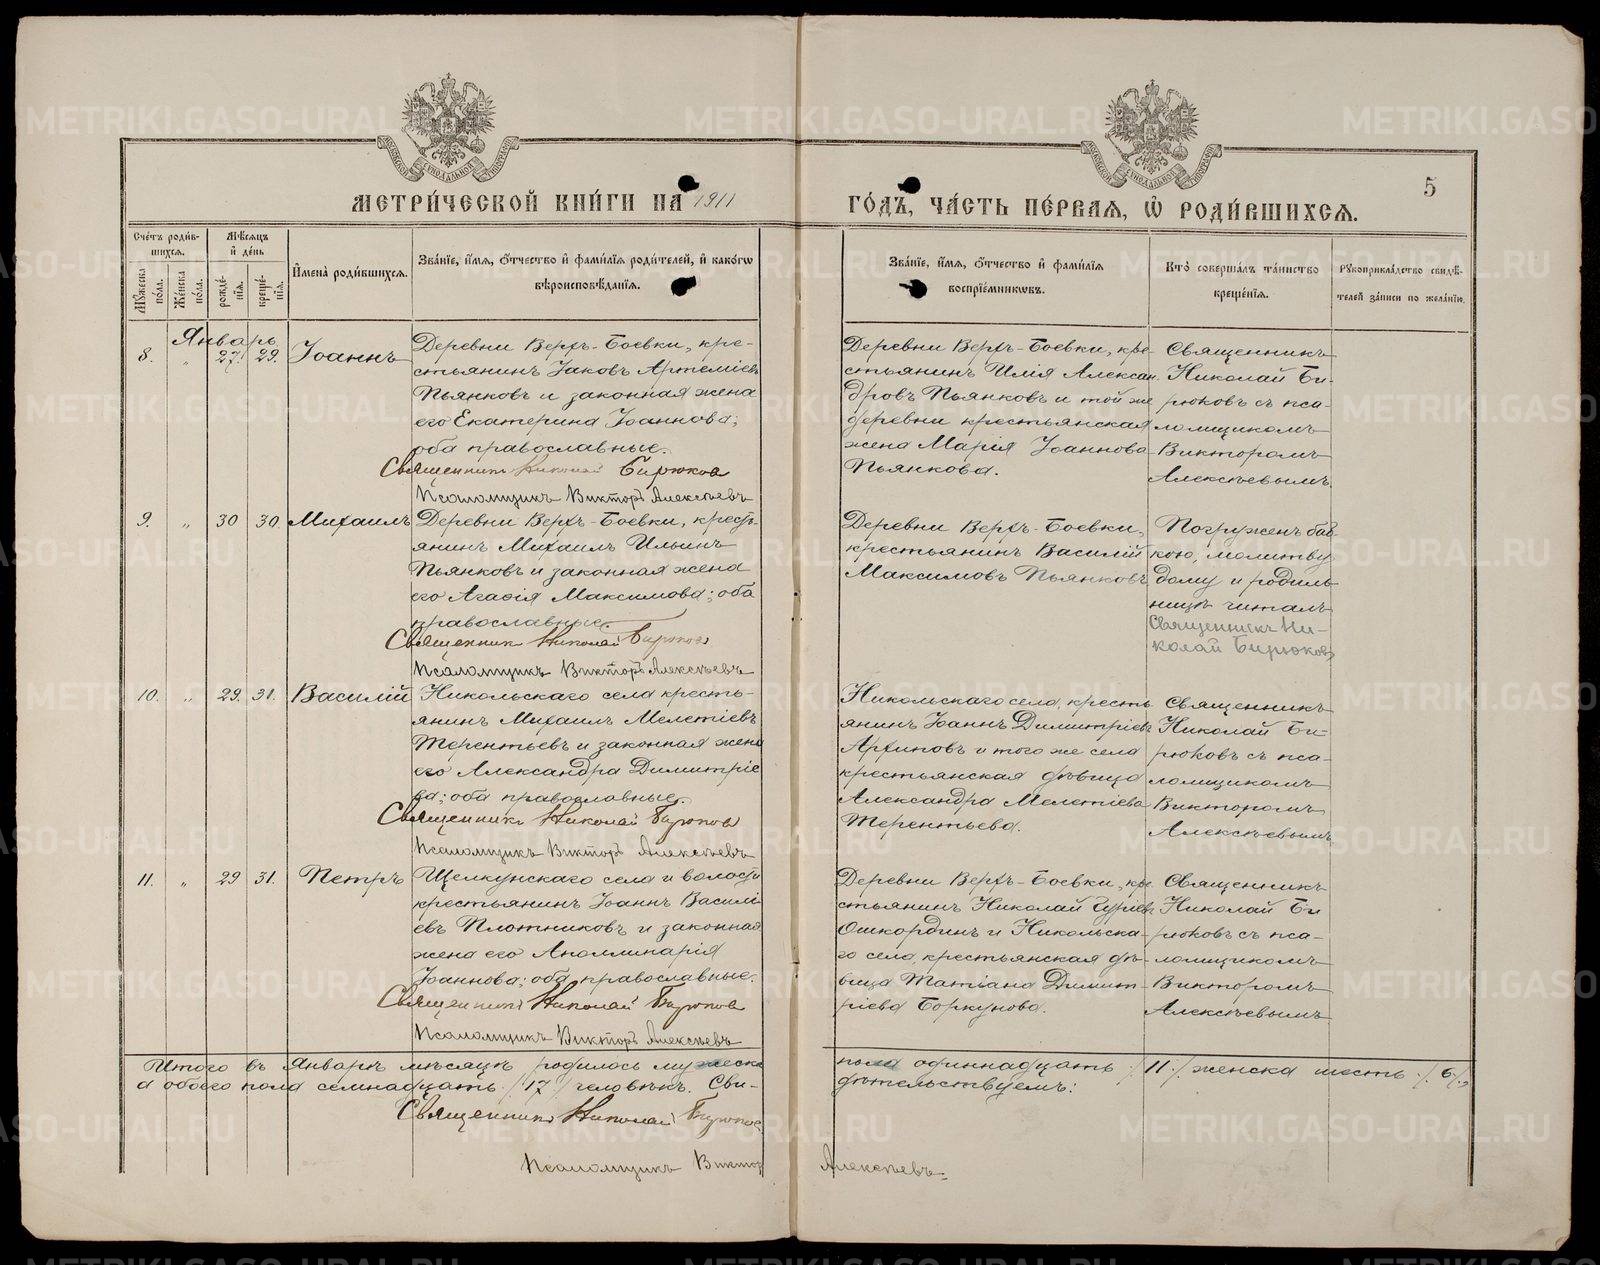 МЕТРИ́ЧЕСКОЙ КНИ́ГИ НА 1911
ГО́ДЪ, ЧА́СТЬ ПЕ́РВАЯ, Ѡ҆ РОДИ́ВШИХСЯ.
5
Сче́тъ роди́в-
шихся.
Му́жеска по́ла.
Же́нска по́ла.
Мѣ́сяцъ
и҆ де́нь
рожде́-
нїя.
креще́-
нїя.
И҆мена̀ роди́вшихся.
Зва́нїе, и҆́мя, ѻ҆́тчество и҆ фами́лїя роди́телей, и҆ како́гѡ
вѣроисповѣ́данїя.
Зва́нїе, и҆́мя, ѻ҆́тчество и҆ фами́лїя
воспрїе́мникѡвъ.
Кто̀ соверша́лъ та́инство
креще́нїя.
Рꙋкоприкла́дство свидѣ́-
телей за́писи по жела́нїю.
Январь
8. " 27. 29. Іоаннъ
Деревни Верхъ-Боевки, кре-
стьянинъ Іаковъ Артеміевъ
Пьянковъ и законная жена
его Екатерина Іоаннова;
оба православные.
Священникъ Николай Бирюковъ
Псаломщикъ Викторъ Алексѣевъ
Деревни Верхъ-Боевки, кре-
стьянинъ Илія Алексан
дровъ Пьянковъ и той же
деревни крестьянская
жена Марія Іоаннова
Пьянкова.
Священникъ
Николай Би-
рюковъ съ пса-
ломщикомъ
Викторомъ
Алексѣевымъ.
9. " 30 30. Михаилъ
Деревни Верхъ-Боевки, кресть-
янинъ Михаилъ Ильинъ
Пьянковъ и законная жена
его Агафія Максимова; оба
православные.
Священникъ Николай Бирюковъ
Псаломщикъ Викторъ Алексѣевъ
Деревни Верхъ-Боевки,
крестьянинъ Василій
Максимовъ Пьянковъ
Погруженъ баб
кою, молитву
дому и родиль-
ницѣ читалъ
Священникъ Ни-
колай Бирюковъ
10. " 29. 31. Василій
Никольскаго села кресть-
янинъ Михаилъ Мелетіевъ
Терентьевъ и законная жена
его Александра Димитріе
ва; оба православные.
Священникъ Николай Бирюковъ
Псаломщикъ Викторъ Алексѣевъ
Никольскаго села, кресть
янинъ Іоаннъ Димитріевъ
Архиповъ и того же села
крестьянская дѣвица
Александра Мелетіева
Терентьева.
Священникъ
Николай Би-
рюковъ съ пса-
ломщикомъ
Викторомъ
Алексѣевымъ
11. " 29 31. Петръ
Щелкунскаго села и волости
крестьянинъ Іоаннъ Василі
евъ Плотниковъ и законная
жена его Аполлинарія
Іоаннова; оба православные.
Священникъ Николай Бирюковъ
Псаломщикъ Викторъ Алексѣевъ
Деревни Верхъ-Боевки, кре
стьянинъ Николай Гуріевъ
Ошкординъ и Никольска-
го села, крестьянская дѣ-
вица Татіана Димит-
ріева Боркунова.
Священникъ
Николай Би
рюковъ съ пса-
ломщикомъ
Викторомъ
Алексѣевымъ.
Итого въ Январѣ мѣсяцѣ родилось мужеска пола одиннадцать /11/ женска шесть /6/,
а обоего пола семнадцать /17/ человѣкъ. Сви-дѣтельствуемъ:
Священникъ Николай Бирюковъ
Псаломщикъ Викторъ Алексѣевъ.
METRIKI.GASO-URAL.RU